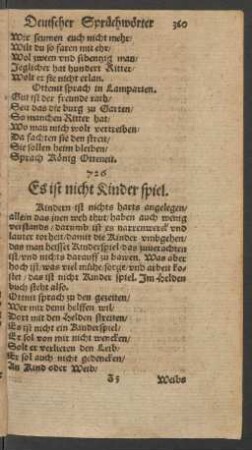 Deutscher Sprächwörter 360
Wir seumen euch nicht mehr/
Wilt du so faren mit ehr/
Wol zwen vnd sibentzig man/
Jeglicher hat hundert Ritter/
Wolt er sie nicht erlan.
Ottenit sprach in Lamparten.
Gut ist der freunde rath/
Sea das die burg zu Garten/
So manchen Ritter hat:
Wo man mich wolt vertreiben/
Da fachten sie den strett/
Sie sollen heim bleiben/
Sprach König Otteneit.
726
Es ist nicht Kinder spiel.
Kindern ist nichts harts angelegen/
allein das jnen weh thut/ haben auch wenig
verstands/ darumb ist es narrenwerck vnd
lauter torheit/ damit die Kinder vmbgehen/
das man heisset Kinderspiel/ das zuuerachten
ist/ vnd nichts darauff zu hawen. Was aber
hoch ist/ was viel mühe/ sorge/ vnd arbeit ko-
stet/ das ist nicht Kinder spiel. Im Helden
buch steht also.
Ottnit sprach zu den gezeiten/
Wer mit denn helffen wil/
Dort mit den Helden streiten/
Es ist nicht ein Kinderspiel/
Er sol von mir nicht wencken/
Solt er verlieren den Leib/
Er sol auch nicht gedencken/
An Kind oder Weib/
Weibs